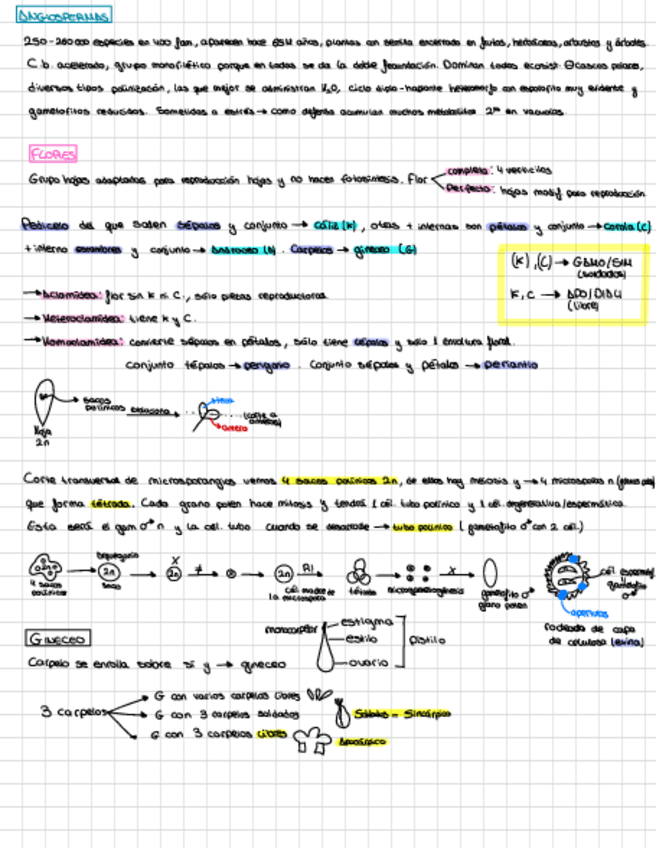 ANGIOSPERMAS
250-260 000 especies en 400 fam, aparecen hace 65M años, plantas con semilla encerrada en frutos, herbáceas, arbustos y árboles.
C.b. acelerado, grupo monofilético porque en todas se da la doble fecundación. Dominan todos ecosist. Θ cascos polares,
diversos tipos polinización, las que mejor se administran H₂O, ciclo diplo-haplonte heteromorfo con esporofito muy evidente y
gametofitos reducidos. Sometidas a estrés → como defensa acumulan muchos metabolitos 2ºs en vacuolas.
FLORES
Grupo hojas adaptadas para reproducción hojas y no hacer fotosíntesis. Flor
completa: 4 verticilos
Perfecta: hojas modif para reproducción
Pedicelo del que salen sépalos y conjunto → cáliz (K), otras + internas son pétalos y conjunto → corola (C)
+ interno estambres y conjunto → androceo (A). Carpelos → gineceo (G)
(K), (C) → GAMO/SIN (soldados)
K, C → APO/DIALI (libre)
→ Aclamidea: flor sin K ni C, sólo piezas reproductoras.
→ Heteroclamidea: tiene K y C.
→ Homoclamidea: convierte sépalos en pétalos, sólo tiene tépalos y sólo 1 envoltura floral.
Conjunto tépalos → perigonio. Conjunto sépalos y pétalos → periantio
Hoja 2n
sacos polínicos
evoluciona
teca
antera
Corte transversal de microsporangios vemos 4 sacos polínicos 2n, de ellos hay meiosis y → 4 microsporas n
que forma tétrada. Cada grano polen hace mitosis y tendrá 1 cél. tubo polínico y 1 cél. degenerativa/espermática.
Esta será el gam ♂ n y la cél. tubo cuando se desarrolle → tubo polínico (gametofito ♂ con 2 cél.)
2n
4 sacos polínicos
2n
saco
X
2n
≠
2n
cél madre de la microspora
R!
tétrada
microsporogénesis
X
gametofito ♂
grano polen
aperturas
rodeada de capa de celulosa (exina)
GINECEO
Carpelo se enrolla sobre sí y → gineceo
monocarpelar
estigma
estilo
ovario
pistilo
3 carpelos
G con varios carpelos libres
G con 3 carpelos soldados
Soldados = Sincárpico
G con 3 carpelos libres
Apocárpico